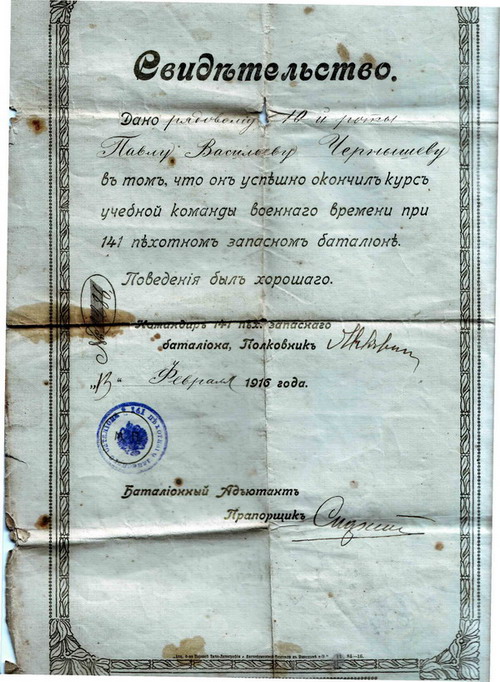 Свидѣтельство.
Дано рядовому 10 й роты
Павлу Васильеву Чернышеву
въ томъ, что онъ успѣшно окончилъ курсъ
учебной команды военнаго времени при
141 пѣхотномъ запасномъ баталіонѣ.
Поведенія былъ хорошаго.
Командиръ 141 пѣх. запаснаго
баталіона, Полковникъ
„13" Февраля 1916 года.
Баталіонный Адъютантъ
Прапорщикъ